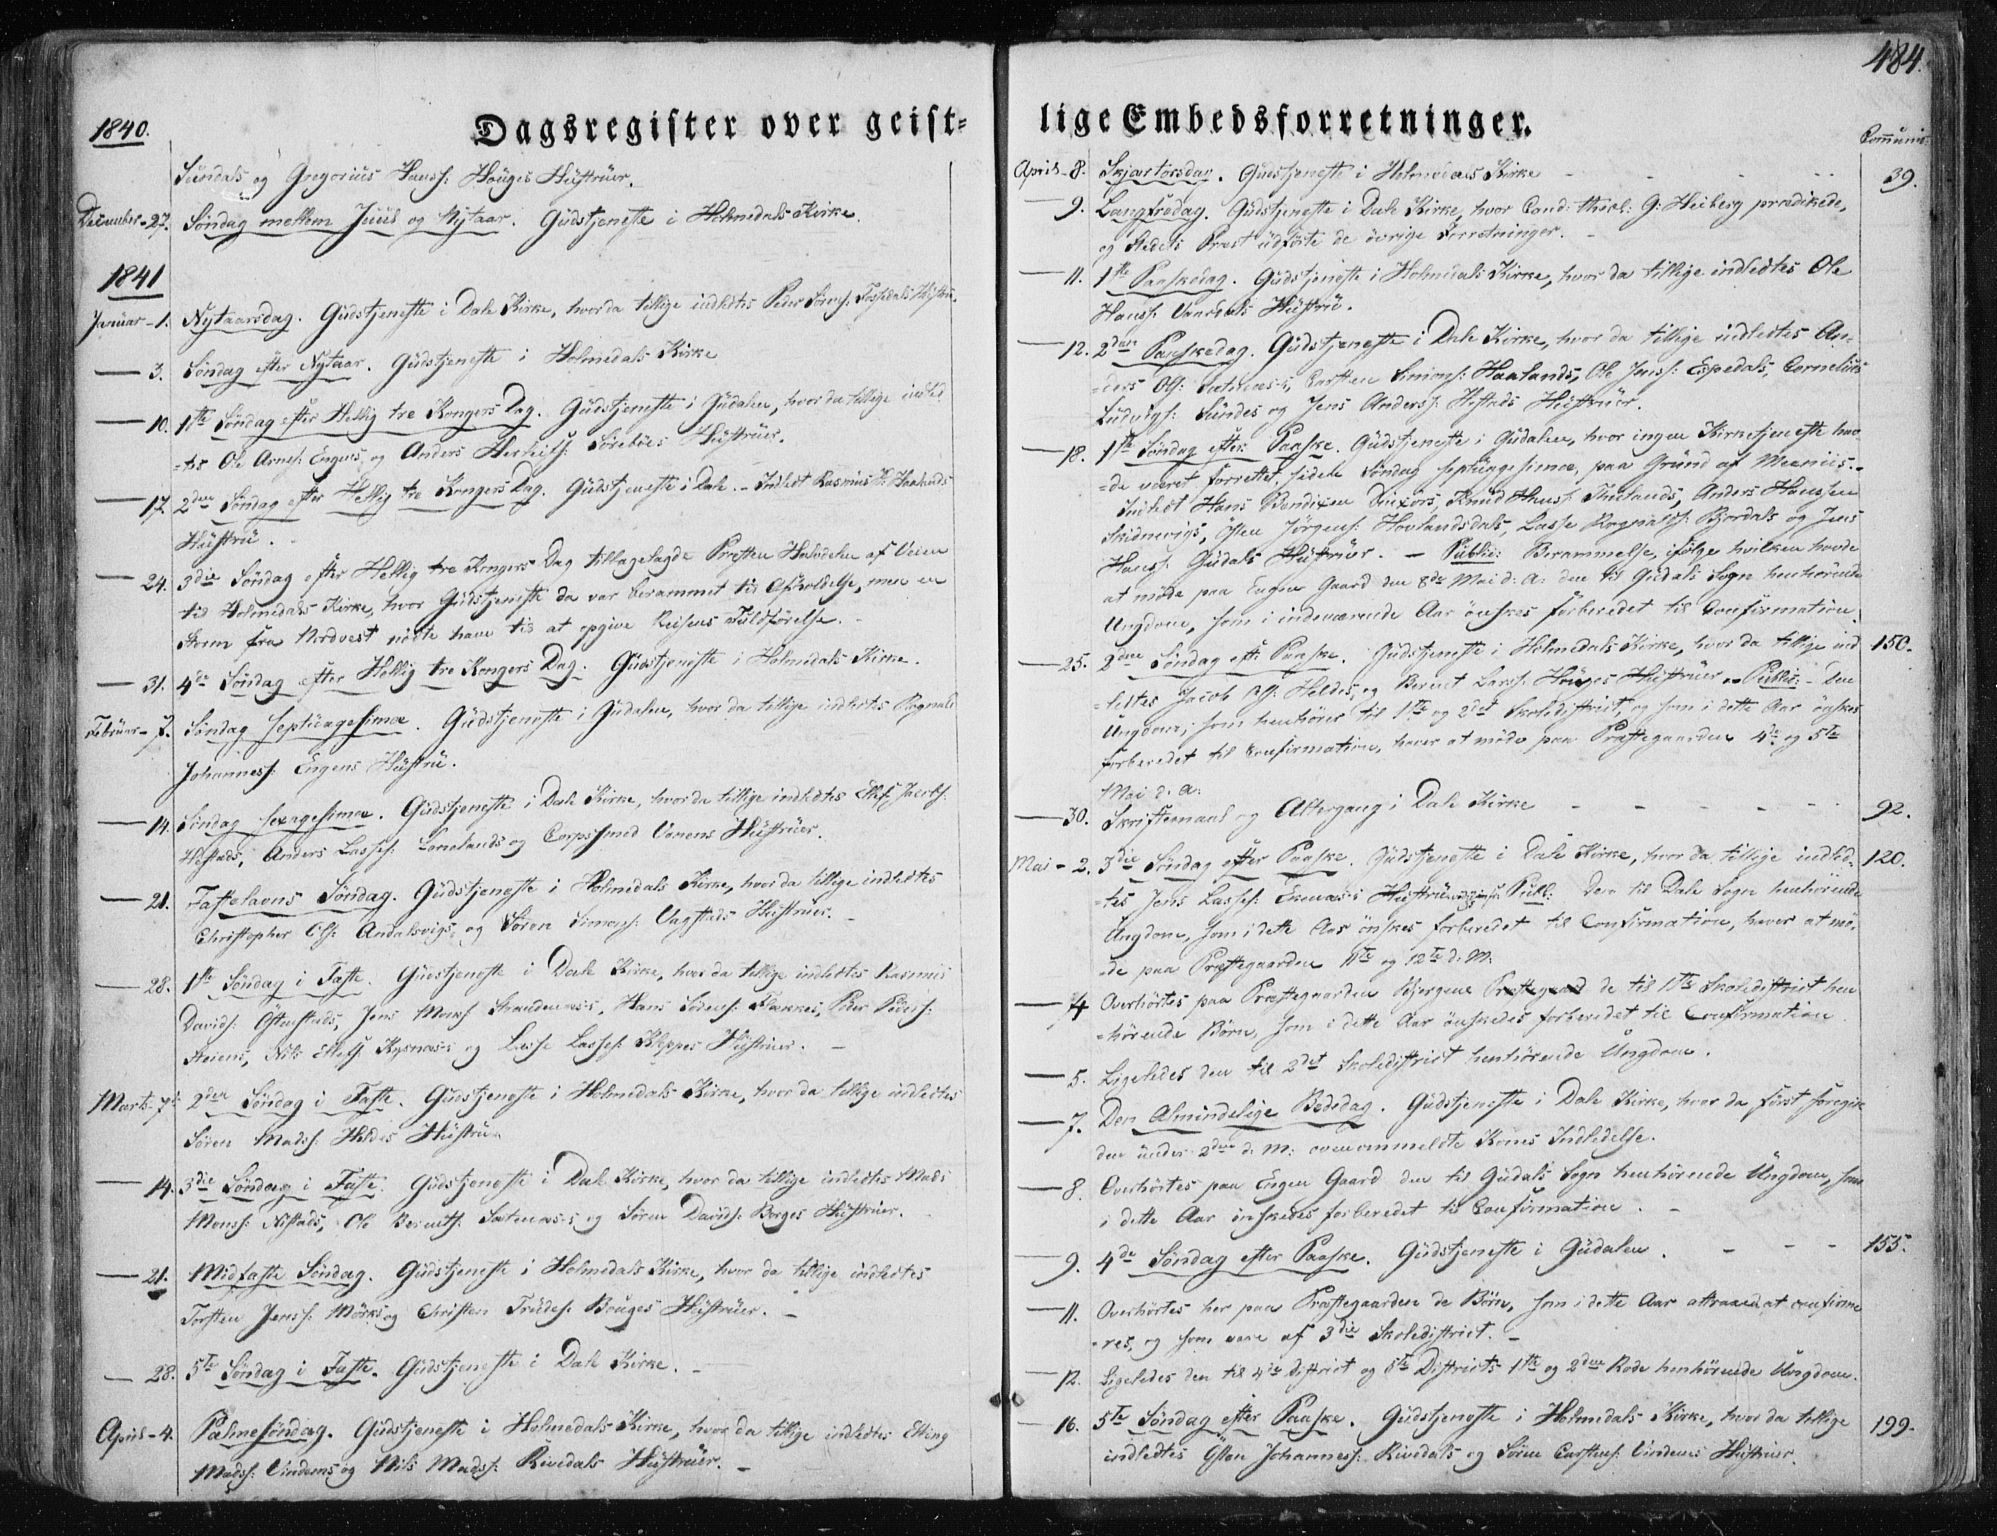 484.
1840.
Dagsregister over geist=
lige Embedsforretninger.
Communic:
Sundals og Gregorius Hanss: Houges Hüstrüer.
December - 27. Søndag mellem Juul og Nytaar. Güdstjeneste i Holmedals Kirke.
1841
Januar - 1. Nytaarsdag. Güdstjeneste i Dale Kirke, hvor da tillige indledtes Peder Sørens: Fossedals Hüstrü.
— 3. Søndag efter Nytaar. Güdstjeneste i Holmedals Kirke
— 10. 1ste Søndag efter Hellig tre Kongers Dag. Güdstjeneste i Güdalen, hvor da tillige indled
=tes Ole Arnes: Engens og Anders Hüstrüer.
— 17. 2den Søndag efter Hellig tre Kongers Dag. Güdstjeneste i Dale. - Indledt Rasmus Haalands
Hüstrü.
— 24. 3die Søndag efter Hellig tre Kongers Dag tilbagelagde Præsten Halvdelen af Veien
til Holmedals Kirke, hvor Güdstjeneste da var berammet til Afholdelse, men en
Storm fra Nordvest nødte ham til at opgive Reisens Fuldførelse.
— 31. 4de Søndag efter Hellig tre Kongers Dag. Güdstjeneste i Holmedals Kirke.
Februar - 7. Søndag septuagesimæ. Güdstjeneste i Güdalen, hvor da tillige indledtes Rognald
Johanness: Engens Hüstrü.
— 14. Søndag sexagesimæ. Güdstjeneste i Dale Kirke, hvor da tillige indledtes Ellef Jacobs:
Hestads, Anders Lasses: Lonelands og Corpssmed Vonens Hüstrüer.
— 21. Fastelavns Søndag. Güdstjeneste i Holmedals Kirke, hvor da tillige indledtes
Christopher Ols: Andalsvigs, og Sören Simons: Vagstads Hüstrüer. -
— 28. 1ste Søndag i Faste. Güdstjeneste i Dale Kirke, hvor da tillige indledtes Rasmus
Davids: Østenstads, Jens Mons: Strandenæs-s, Hans Sörens: Flekkes, Peder Peders:
Steiens, Nils Ellefs: Rysnæs-s og Lasse Lasses: Kleppes Hüstrüer. -
Marts - 7. 2den Søndag i Faste. Güdstjeneste i Holmedals Kirke, hvor da tillige indledtes
Sören Madss: Heldes Hüstrü.
— 14. 3die Søndag i Faste. Güdstjeneste i Dale Kirke, hvor da tillige indledtes Mads
Monss: Nistads, Ole Berents: Sætenæs-s og Sören Davids: Borges Hüstrüer.
— 21. Midfaste Søndag. Güdstjeneste i Holmedals Kirke, hvor da tillige indledtes
Torsten Jenss: Mörks og Christen Trudes: Bouges Hüstrüer. -
— 28. 5te Søndag i Faste. Güdstjeneste i Dale Kirke. -
April - 4. Palmesöndag. Güdstjeneste i Holmedals Kirke, hvor da tillige indledtes Elling
Madss: Vindens og Nils Madss: Rivedals Hüstrüer. -
April - 8. Skjærtorsdag. Güdstjeneste i Holmedals Kirke 39.
— 9. Langfredag. Güdstjeneste i Dale Kirke, hvor Cand: theol: G: Heiberg prædikede,
og Stedets Præst udførte de övrige Forretninger. -
— 11. 1ste Paaskedag. Güdstjeneste i Holmedals Kirke, hvor da tillige indledtes Ole
Hanss: Vaardals Hüstrü.
— 12. 2den Paaskedag. Güdstjeneste i Dale Kirke, hvor da tillige indledtes An-
=ders Ols: Sætenæs-s, Carsten Simons: Haalands, Ole Jenss: Espedals, Cornelius
Ludvigs: Sündes og Jens Anderss: Hestads Hüstrüer.
— 18. 1ste Søndag efter Paaske. Güdstjeneste i Güdalen, hvor ingen Kirketjeneste hav
=de været forrettet siden Søndag septuagesimæ, paa Gründ af Meeniis. -
Indledt Hans Bendixen, Knud Hanss:, Anders Hanssen
Skidnevigs, Østen Jörgens: Hovlandsdals, Lasse Rognalds: Bjordals og Jens
Hanss: Güdals Hüstrüer. - Public: Berammelse, ifölge hvilken havde
at møde paa Engen Gaard den 8de Mai d: A: den til Güdals Sogn henhörende
Ungdom, som i indeværende Aar önskes forberedet til Confirmation.
— 25. 2den Søndag eft: Paaske. Güdstjeneste i Holmedals Kirke, hvor da tillige ind 150.
=ledtes Jacob Ols: Heldes, og Berent Larss: Houges Hüstrüer. - Public: - Den
Ungdom, som henhörer til 1ste og 2det Skoledistrict, og som i dette Aar önskes
forberedet til Confirmation, haver at møde paa Præstegaarden 4de og 5te
Mai d: A:
— 30. Skriftemaal og Altergang i Dale Kirke 92.
Mai - 2. 3die Søndag efter Paaske. Güdstjeneste i Dale Kirke, hvor da tillige indled- 120.
=tes Jens Lasses: Ekenæs-s Hüstrü. Publ: Den til Dale Sogn henhörende
Ungdom, som i dette Aar önskes forberedet til Confirmation, haver at mö-
=de paa Præstegaarden 11te og 12te d: M:
— 4 Overhörtes paa Præstegaarden de til 1ste Skoledistrict hen
=hörende Börn, som i dette Aar önskedes forberedet til Confirmation.
— 5. Ligeledes den til 2det Skoledistrict henhörende Ungdom.
— 7. Den Almindelige Bededag. Güdstjeneste i Dale Kirke, hvor da först foregik
den under 2den d: M: ovenanmeldte Kones Indledelse.
— 8. Overhörtes paa Engen Gaard den til Güdals Sogn henhörende Ungdom, som
i dette Aar önskedes forberedet til Confirmation. -
— 9. 4de Søndag efter Paaske. Güdstjeneste i Güdalen. 155.
— 11. Overhörtes her paa Præstegaarden de Börn, som i dette Aar attraaed, at confirme
=res, og som vare af 3die Skoledistrict. -
— 12. Ligeledes den til 4de District og 5te Districts 1ste og 2den Rode henhörende Ungdom.
— 16. 5te Søndag efter Paaske. Güdstjeneste i Holmedals Kirke, hvor da tillige 199.
indledtes Østen Johanness: Rivedals og Sören Carstens: Vindens Hüstrüer.